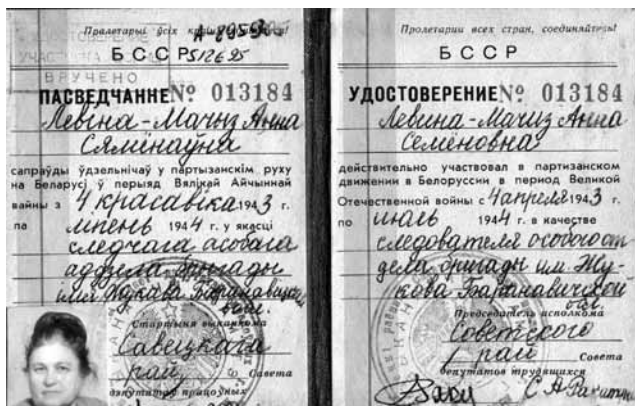 Пралетарыі ўсіх краін, еднайцеся!
БССР
ВРУЧЕНО
ПАСВЕДЧАННЕ № 013184
Левіна-Мачыз Анна
Сямёнаўна
сапраўды ўдзельнічаў у партызанскім руху
на Беларусі ў перыяд Вялікай Айчыннай
вайны з 4 красавіка 1943 г.
па ліпень 1944 г. у якасці
следчага асобага
аддзела брыгады
імя Жукава Баранавіцкай
вобл.
Старшыня выканкома
Савецкага
рай Савета
дэпутатаў працоўных
Пролетарии всех стран, соединяйтесь!
БССР
УДОСТОВЕРЕНИЕ № 013184
Левина-Мачиз Анна
Семеновна
действительно участвовал в партизанском
движении в Белоруссии в период Великой
Отечественной войны с 4 апреля 1943 г.
по июль 1944 г. в качестве
следователя особого от
дела бригады им. Жу-
кова Барановичской
обл.
Председатель исполкома
Советского
рай Совета
депутатов трудящихся